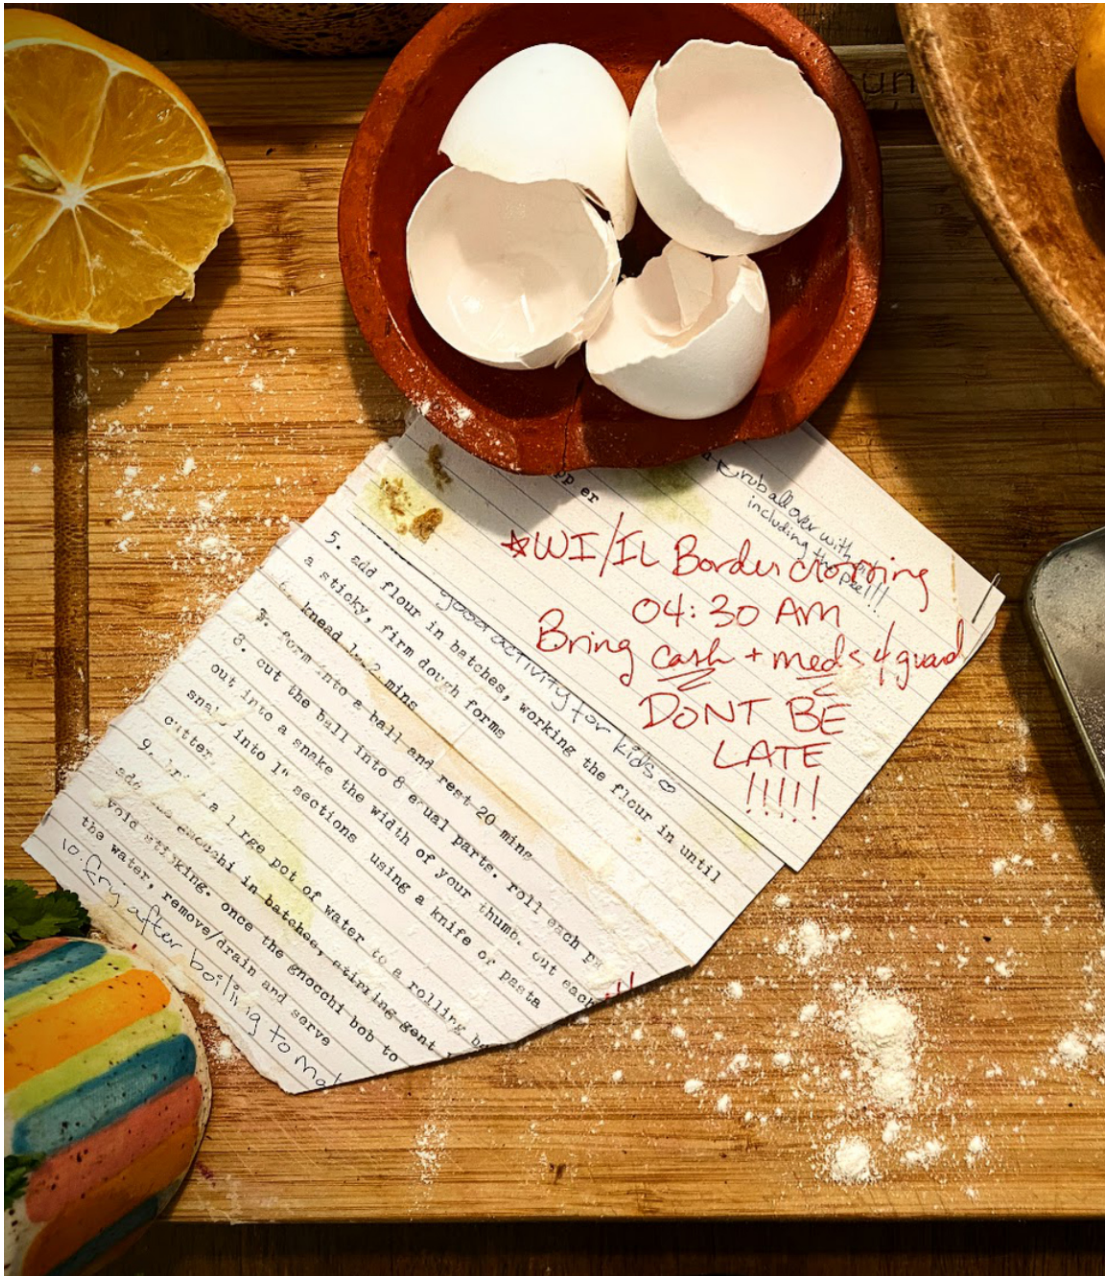 pp er
rub all over with
including the peel!!
☆WI/IL Border crossing
04:30 AM
Bring cash + meds 4 guard
DONT BE
LATE
!!!!!
good activity for kids ♡
5. add flour in batches, working the flour in until
a sticky, firm dough forms
6. knead 1-2 mins
7. form into a ball and rest 20 mins
8. cut the ball into 8 e ual parts. roll each
out into a snake the width of your thumb. cut each
into 1" sections using a knife or pasta
cutter
9. a l rge pot of water to a rolling
add gnocchi in batches, stirring gent
void sticking. once the gnocchi bob to
the water, remove/drain and serve
10. fry after boiling to